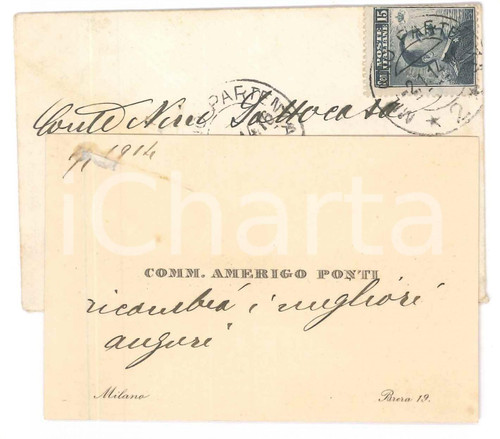 15
POSTE ITALIANE
PARTENZA
PARTENZA
Conte Nino Gallocasa
1914
iCharta
COMM. AMERIGO PONTI
ricambia i migliori
auguri
Milano
Brera 19.